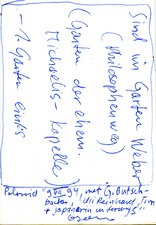 Sind im Garten Weber
(Philosophenweg)
(Garten der ehem.
Michaelis-Kapelle)
- 1. Garten links
Polaroid "9.VII.94, met G. Butsch-
bacher, Uli Reinhard, Tim
+ Japanerin unterwegs"